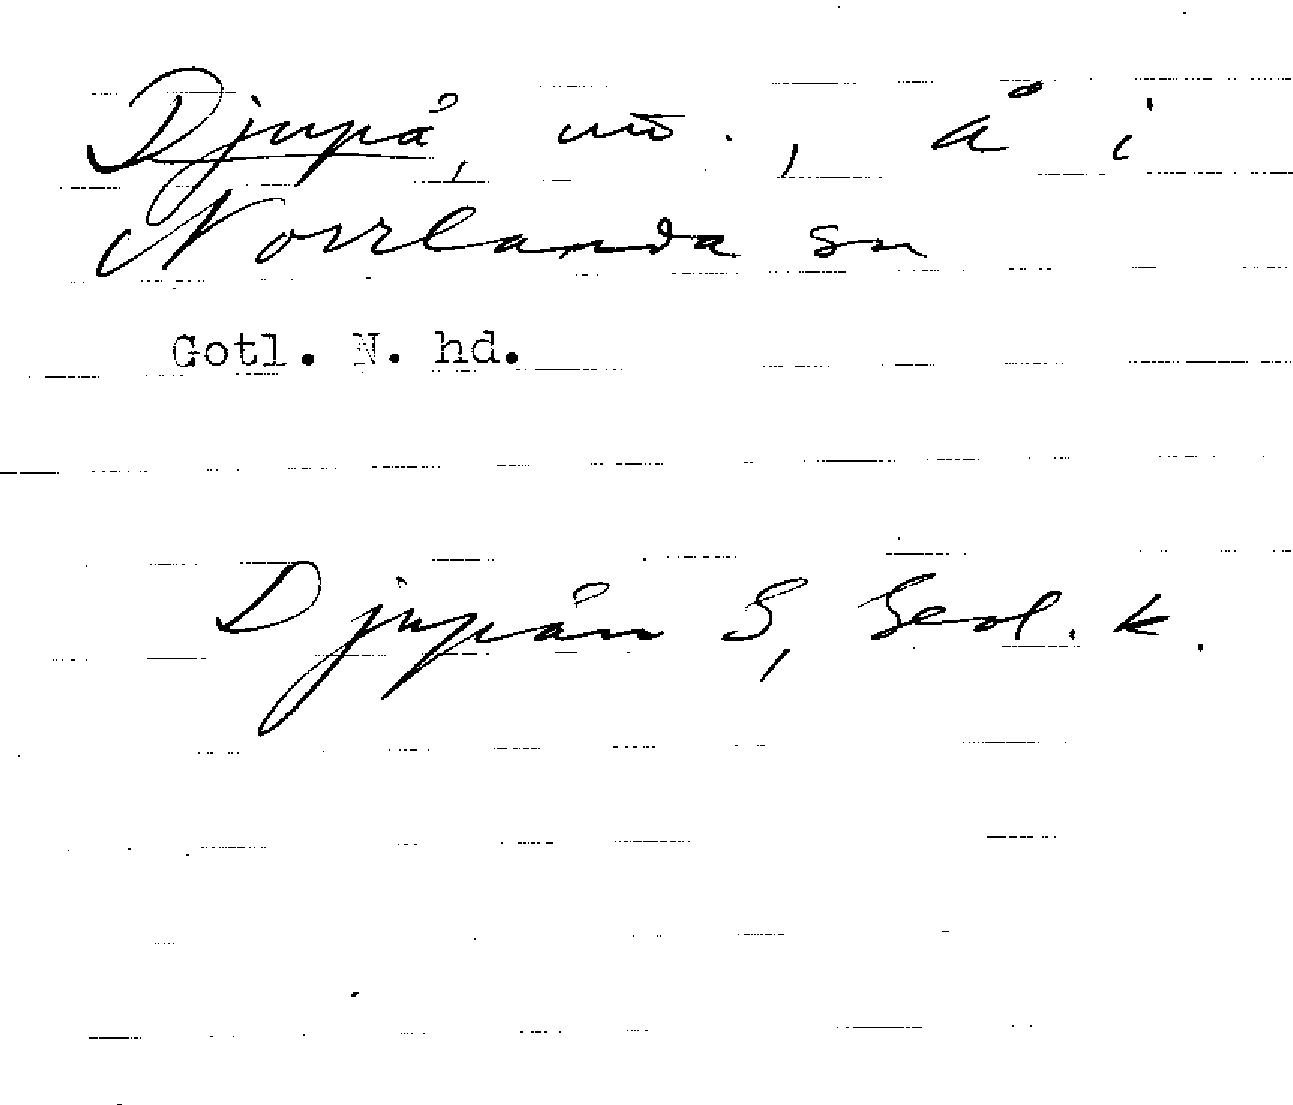 Djupå, nö., å i
Norrlanda sn
Gotl. N. hd.
Djupån S, Geol. k.